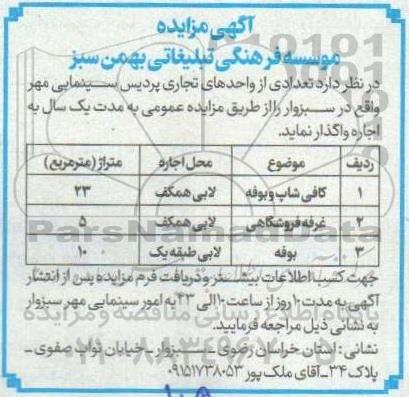 آگهی مزایده
موسسه فرهنگی تبلیغاتی بهمن سبز
در نظر دارد تعدادی از واحدهای تجاری پردیس سینمایی مهر
واقع در سبزوار را از طریق مزایده عمومی به مدت یک سال به
اجاره واگذار نماید.
ردیف موضوع محل اجاره متراژ (مترمربع)
۱ کافی شاپ و بوفه لابی همکف ۲۳
۲ غرفه فروشگاهی لابی همکف ۵
۳ بوفه لابی طبقه یک ۱۰
جهت کسب اطلاعات بیشتر و دریافت فرم مزایده پس از انتشار
آگهی به مدت ۱۰ روز از ساعت ۱۰ الی ۲۲ به امور سینمایی مهر سبزوار
به نشانی ذیل مراجعه فرمایید.
نشانی: استان خراسان رضوی ـ سبزوار ـ خیابان نواب صفوی ـ
پلاک ۳۴ ـ آقای ملک پور ۰۹۱۵۱۷۳۸۰۵۳
ParsNamadData
پایگاه اطلاع رسانی مناقصه و مزایده